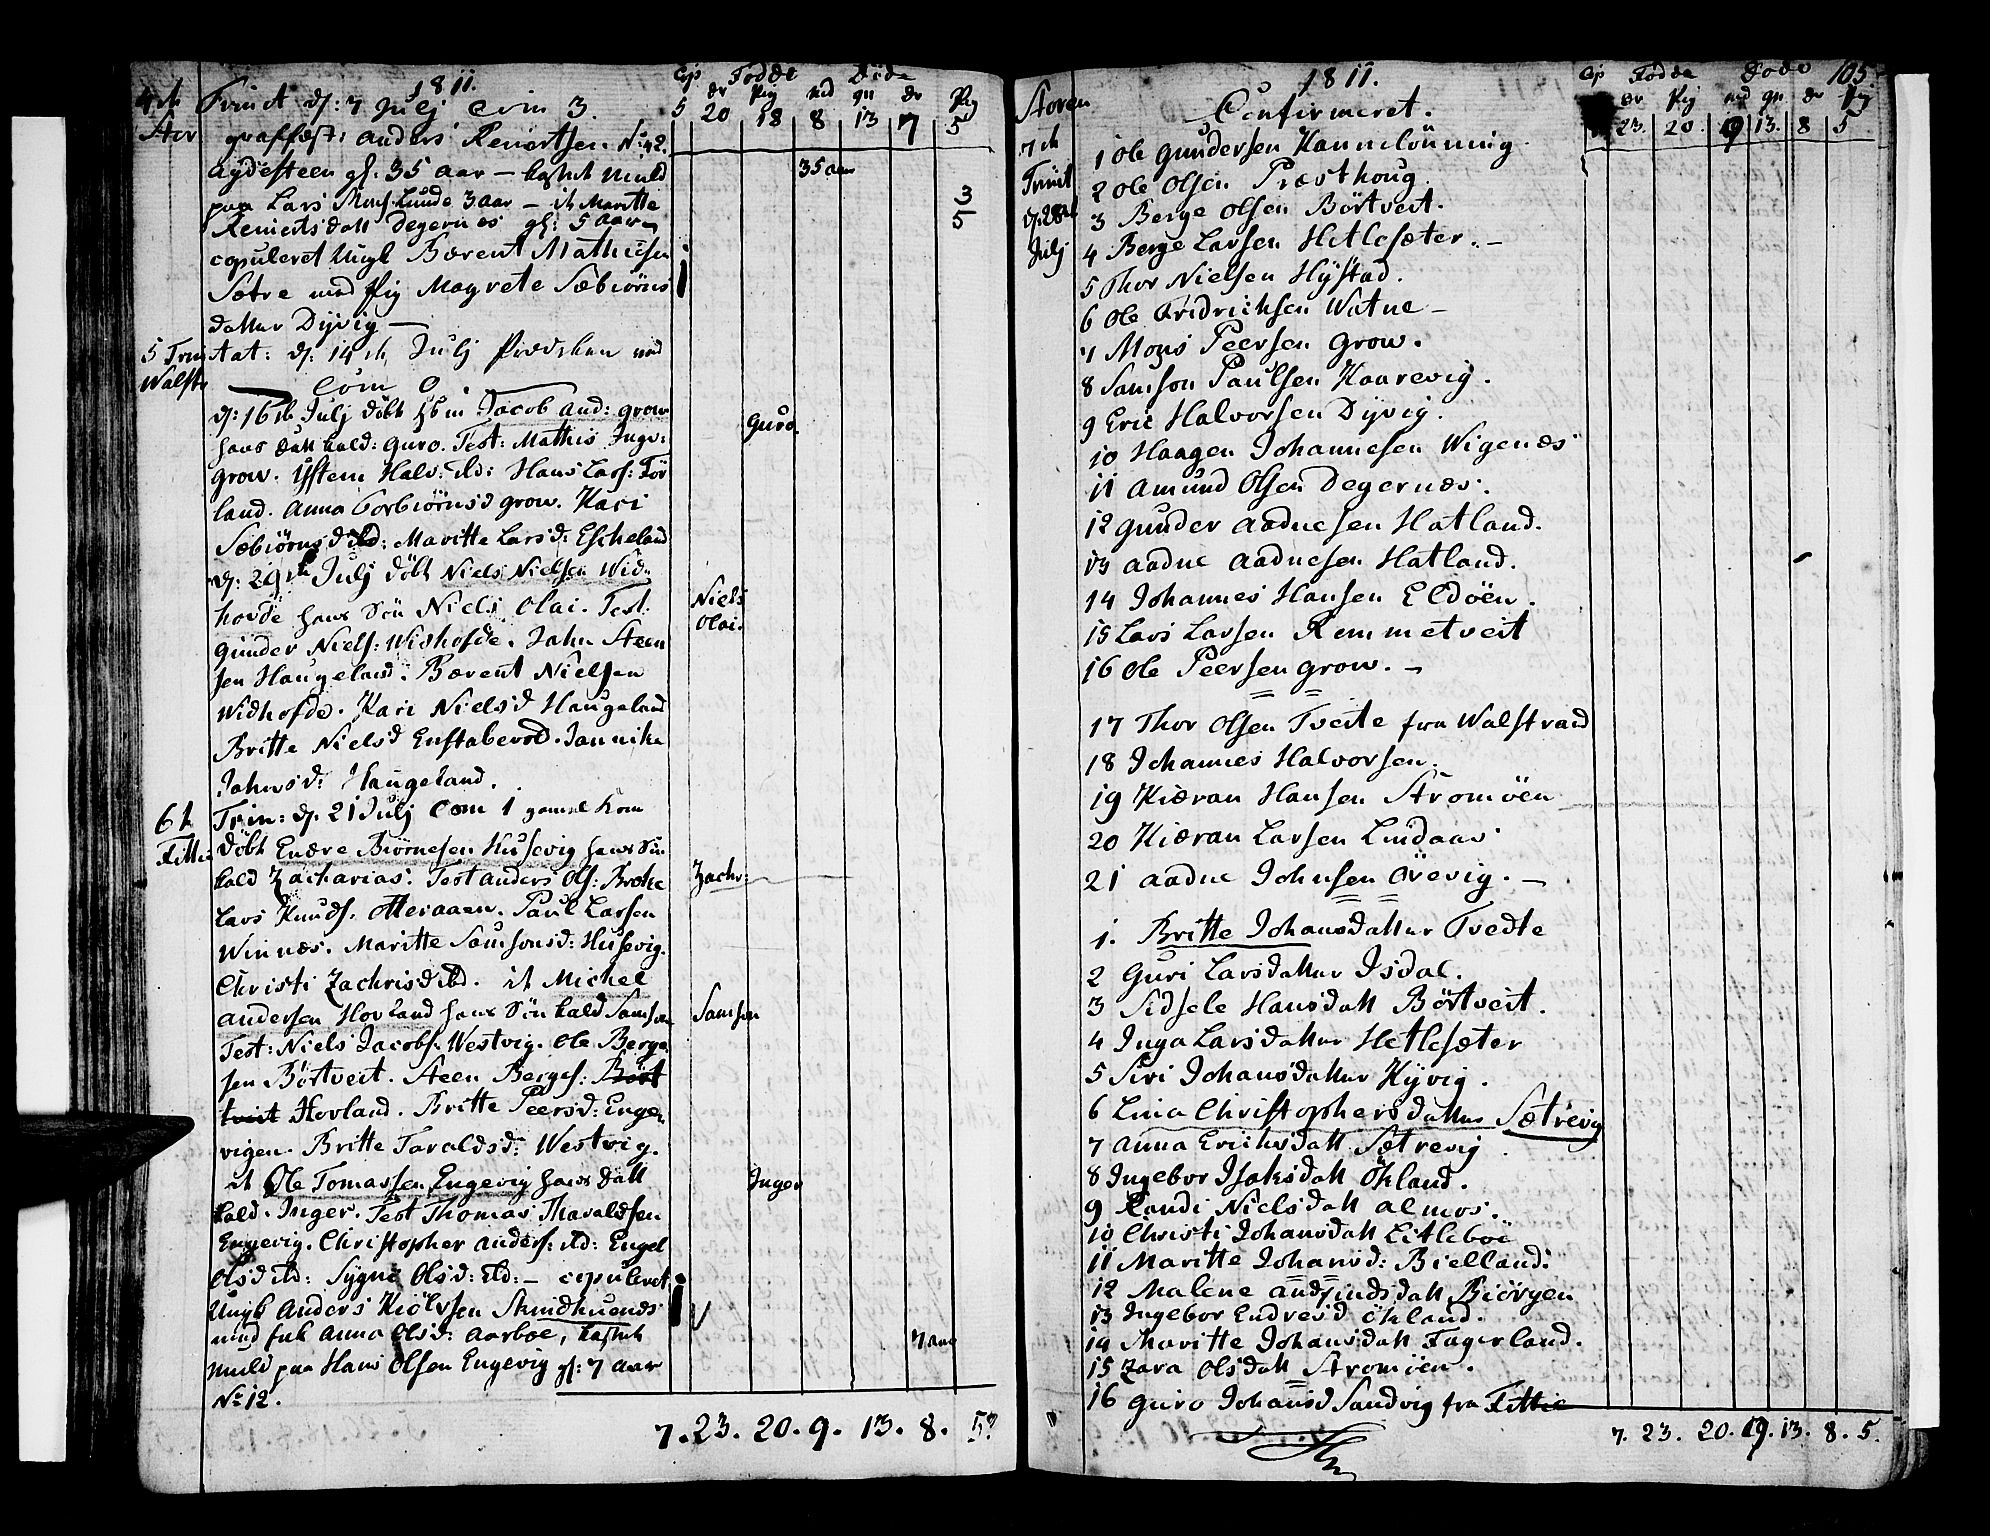 1811.
Cop Födde Döde
dr Pig md qu dr Pig
5 20 18 8 13 7 5
4de Trinit d: 7 Julj Com 3.
Stor
graffæst: Anders Reiertsen No 42.
Aydesteen gl: 35 Aar — kastet Muld
35 aar
paa Lars Monsl: Lunde 3 aar — it Maritte
3
Reiertsdatt Degernes gl: 5 aar
5
copuleret Ungk Bærent Mathiesen
Sætre med Pig Magrete Sæbiörns
datter Dyvig —
5 Trinitat: d: 14de Julj Prædiken ved
Walstr
Com 0
d: 16de Julj döbt Jacob And: Grow
Guro
hans Datt kald: Guro. Test: Mathis Ingv:
Grow. Östen Halv: ibd: Hans Lars: För
land. Anna Torbiörnsd Grow. Kari
Sæbiörnsd ibd: Maritte Larsd: Eskeland
d: 29de Julj döbt Niels Nielsen Wid
hovde hans Sön Niels Olai. Test:
Niels
Olai.
Gunder Niels: Widhofde. John Steen
sen Haugeland. Bærent Nielsen
Widhofde. Kari Nielsd Haugeland
Britte Nielsd Enstabevold. Jannike
Johnsd: Haugeland.
6t Trin: d: 21 Julj Com 1 gamel Kone
Fittie
Döbt Endre Biörnesen Husevig hans Sön
kald Zacharias. Test Anders Ols: Brekke
Zachr:
Lars Knuds. Otteraaen. Paul Larsen
Winnæs. Maritte Samsonsd: Husevig.
Christi Zachrisd ibd. it Michel
Andersen Hovland hans Sön kald Samson
Samson
Test: Niels Jacobs. Westvig. Ole Berge
sen Börtveit. Steen Berges: Bört
tveit Hovland. Britte Peersd: Enge
vigen. Britte Taraldsd: Westvig.
it Ole Tomassen Engevig hans Datt
Inger
kald. Inger. Test Thomas Tharaldsen
Engevig. Christopher Anders: ibd: Engel
Olsd ibd: Sygni Olsd: ibd: — copuleret
Ungk Anders Kiölvsen Skindhuenæs
med Enk Anna Olsd: Aarboe, kastet
7 aar
Muld paa Hans Olsen Engevig gl: 7 aar
No 12.
7. 23. 20. 9. 13. 8. 5?
1811. 105
Cop Födde Döde
dr Pig md qu dr
23. 20. 9 13. 8 5
Storen
Confirmeret.
7de
Trinit
d: 28de
Julj
1 Ole Gundersen Hammelönning.
2 Ole Olsen Præsthoug
3 Berge Olsen Börtveit.
4 Berge Larsen Hetlesæter. —
5 Thor Nielsen Hystad.
6 Ole Fridrichsen Watne —
7 Mons Peersen Grow.
8 Samson Paulsen Kaarevig.
9 Eric Halvorsen Dyvig.
10 Haagen Johannesen Wigenæs
11 Amund Olsen Degernæs.
12 Gunder Aadnesen Hatland.
13 Aadne Aadnesen Hatland.
14 Johannes Hansen Eldöen.
15 Lars Larsen Remmetveit
16 Ole Peersen Grow. —
17 Thor Olsen Tveite fra Walstrand
18 Johannes Halvorsen.
19 Kiæran Hansen Stromöen
20 Kiæran Larsen Lindaas
21 Aadne Johnsen Övevig. —
1. Britte Johansdatter Tvedte
2 Guri Larsdatter Isdal.
3 Sidsele Hansdatt Börtveit.
4 Inga Larsdatter Hetlesæter
5 Siri Johansdatter Kyvig.
6 Lina Christophersdatter Sætrevig
7 Anna Erichsdatt Sætrevig
8 Ingebor Isaksdatt Ökland.
9 Randi Nielsdatt Almos.
10 Christi Johansdatt Litleboe
11 Maritte Johansd: Bielland.
12 Malene Aadsindsdatt Biörgen
13 Ingebor Endresd Ökland.
14 Maritte Johansdatt Fagerland.
15 Zara Olsdatt Stromöen.
16 Guro Johansd Sandvig fra Fittie
7. 23. 20. 9. 13. 8. 5.